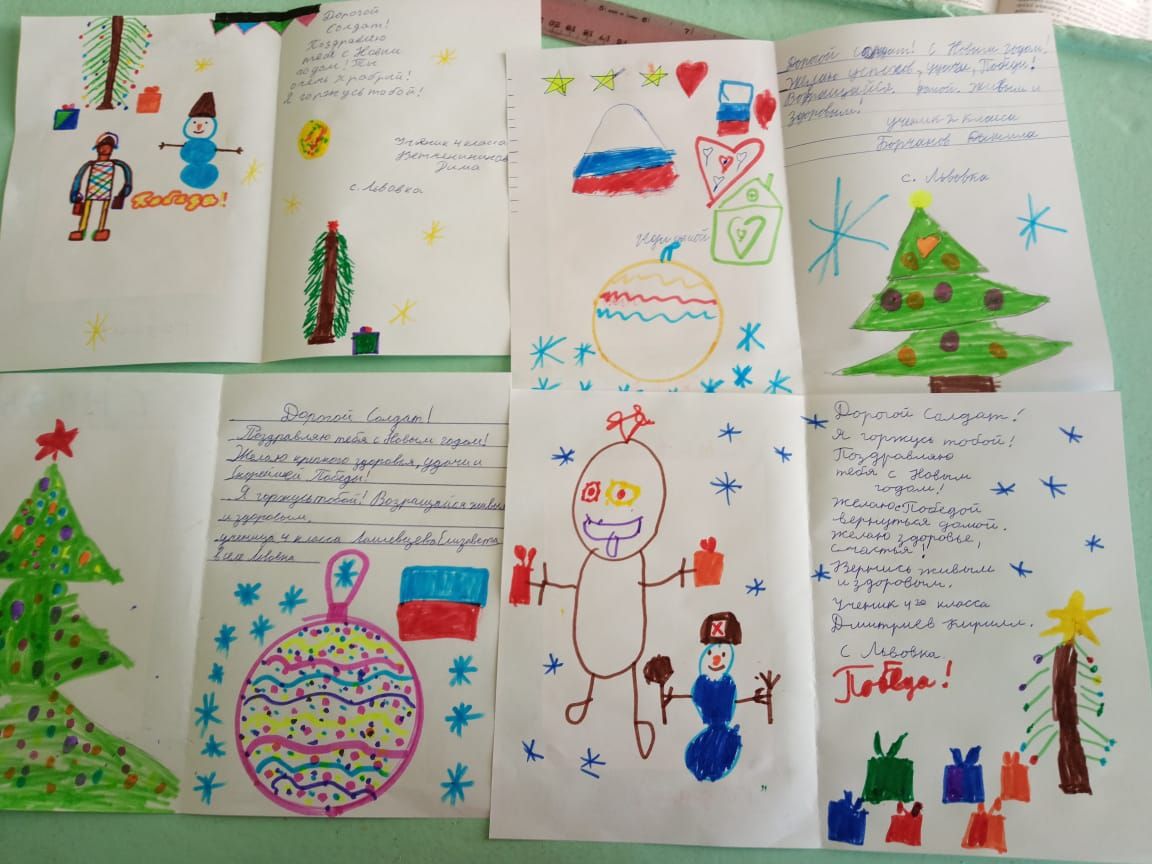 Дорогой
Солдат!
Поздравляю
тебя с Новым
годом! Ты
очень храбрый!
Я горжусь тобой!
Ученик 4 класса
Дима
с. Львовка
Победа!
Дорогой Солдат! С Новым годом!
Желаю успехов, удачи, Победы!
Возращайся домой живым и
здоровым!
ученик 2 класса
Борчанов
с. Львовка
Жди домой
Дорогой Солдат!
Поздравляю тебя с Новым годом!
Желаю крепкого здоровья, удачи и
скорейшей Победы!
Я горжусь тобой! Возращайся живым
и здоровым.
ученица 4 класса Елизавета
село Львовка
Дорогой Солдат!
Я горжусь тобой!
Поздравляю
тебя с Новым
годом!
Желаю с Победой
вернуться домой.
Желаю здоровье,
счастья!
Вернись живым
и здоровым.
Ученик 4го класса
Дмитриев Кирилл.
с Львовка
Победа!